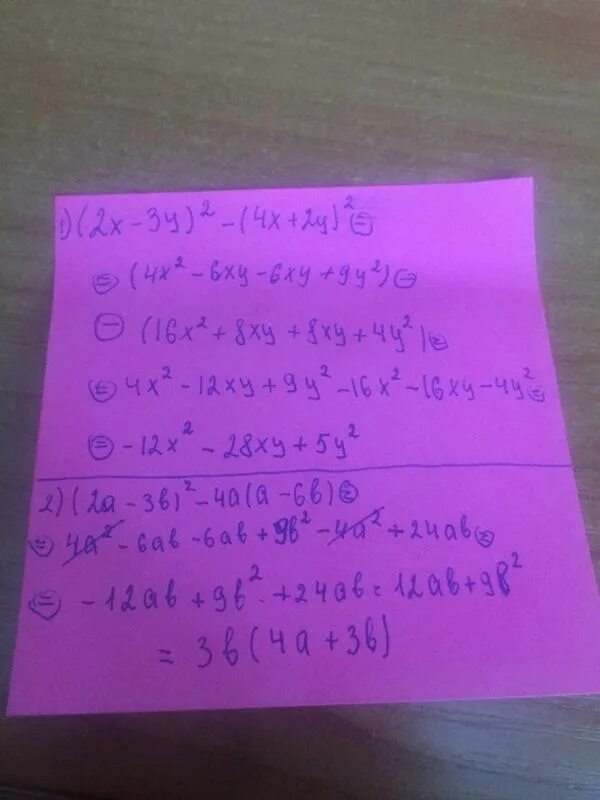 1) (2x - 3y)² - (4x + 2y)² =
= (4x² - 6xy - 6xy + 9y²) -
- (16x² + 8xy + 8xy + 4y²) =
= 4x² - 12xy + 9y² - 16x² - 16xy - 4y² =
= -12x² - 28xy + 5y²
2) (2a - 3b)² - 4a(a - 6b) =
= 4a² - 6ab - 6ab + 9b² - 4a² + 24ab =
= -12ab + 9b² + 24ab = 12ab + 9b²
= 3b(4a + 3b)